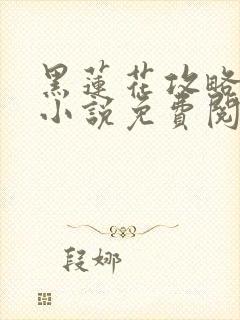 黑蓮花攻略
小說免費閱
段娜